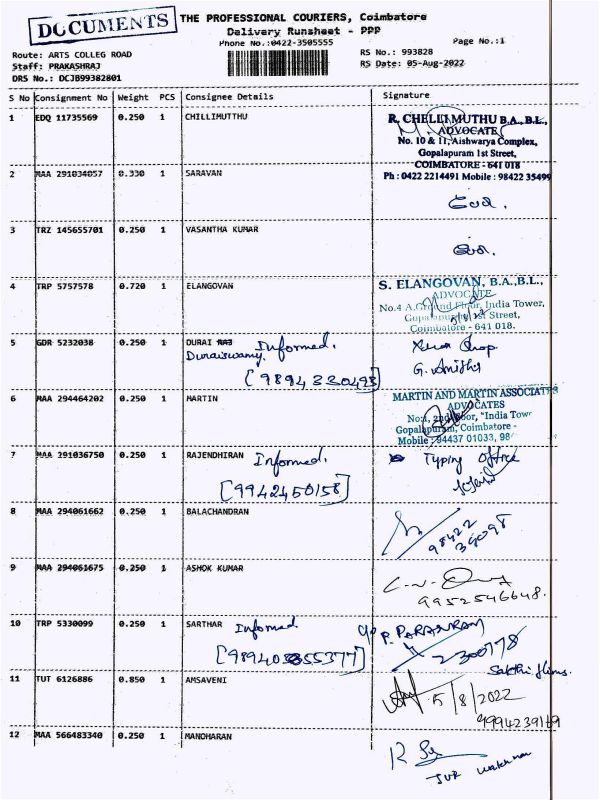 DOCUMENTS
THE PROFESSIONAL COURIERS, Coimbatore
Delivery Runsheet - PPP
Phone No.:0422-3505555
Page No.:1
Route: ARTS COLLEG ROAD
RS No.: 993828
Staff: PRAKASHRAJ
RS Date: 05-Aug-2022
DRS No.: DCJB99382801
S No Consignment No Weight PCS Consignee Details Signature
1 EDQ 11735569 0.250 1 CHILLIMUTTHU
R. CHELLIMUTHU B.A., B.L.,
ADVOCATE
No. 10 & 11, Aishwarya Complex,
Gopalapuram 1st Street,
COIMBATORE - 641 018
Ph : 0422 2214491 Mobile : 98422 35499
2 MAA 291034057 0.330 1 SARAVAN
3 TRZ 145655701 0.250 1 VASANTHA KUMAR
4 TRP 5757578 0.720 1 ELANGOVAN
S. ELANGOVAN, B.A.,B.L.,
ADVOCATE
No.4 A.Ground Floor, India Tower,
Gopalapuram 1st Street,
Coimbatore - 641 018.
5 GDR 5232038 0.250 1 DURAI RAJ Informed.
Duraiswamy.
[9894330493]
6 MAA 294464202 0.250 1 MARTIN
MARTIN AND MARTIN ASSOCIATES
ADVOCATES
No:4, 2nd Floor, "India Tow
Gopalapuram, Coimbatore -
Mobile : 94437 01033, 98
7 MAA 291036750 0.250 1 RAJENDHIRAN Informed. Typing Office
[9942450158]
8 MAA 294061662 0.250 1 BALACHANDRAN
98422
39098
9 MAA 294061675 0.250 1 ASHOK KUMAR
9952546648.
10 TRP 5330099 0.250 1 SARTHAR Informed
2300778
Sakthi films.
11 TUT 6126886 0.850 1 AMSAVENI
5/8/2022
12 MAA 566483340 0.250 1 MANOHARAN